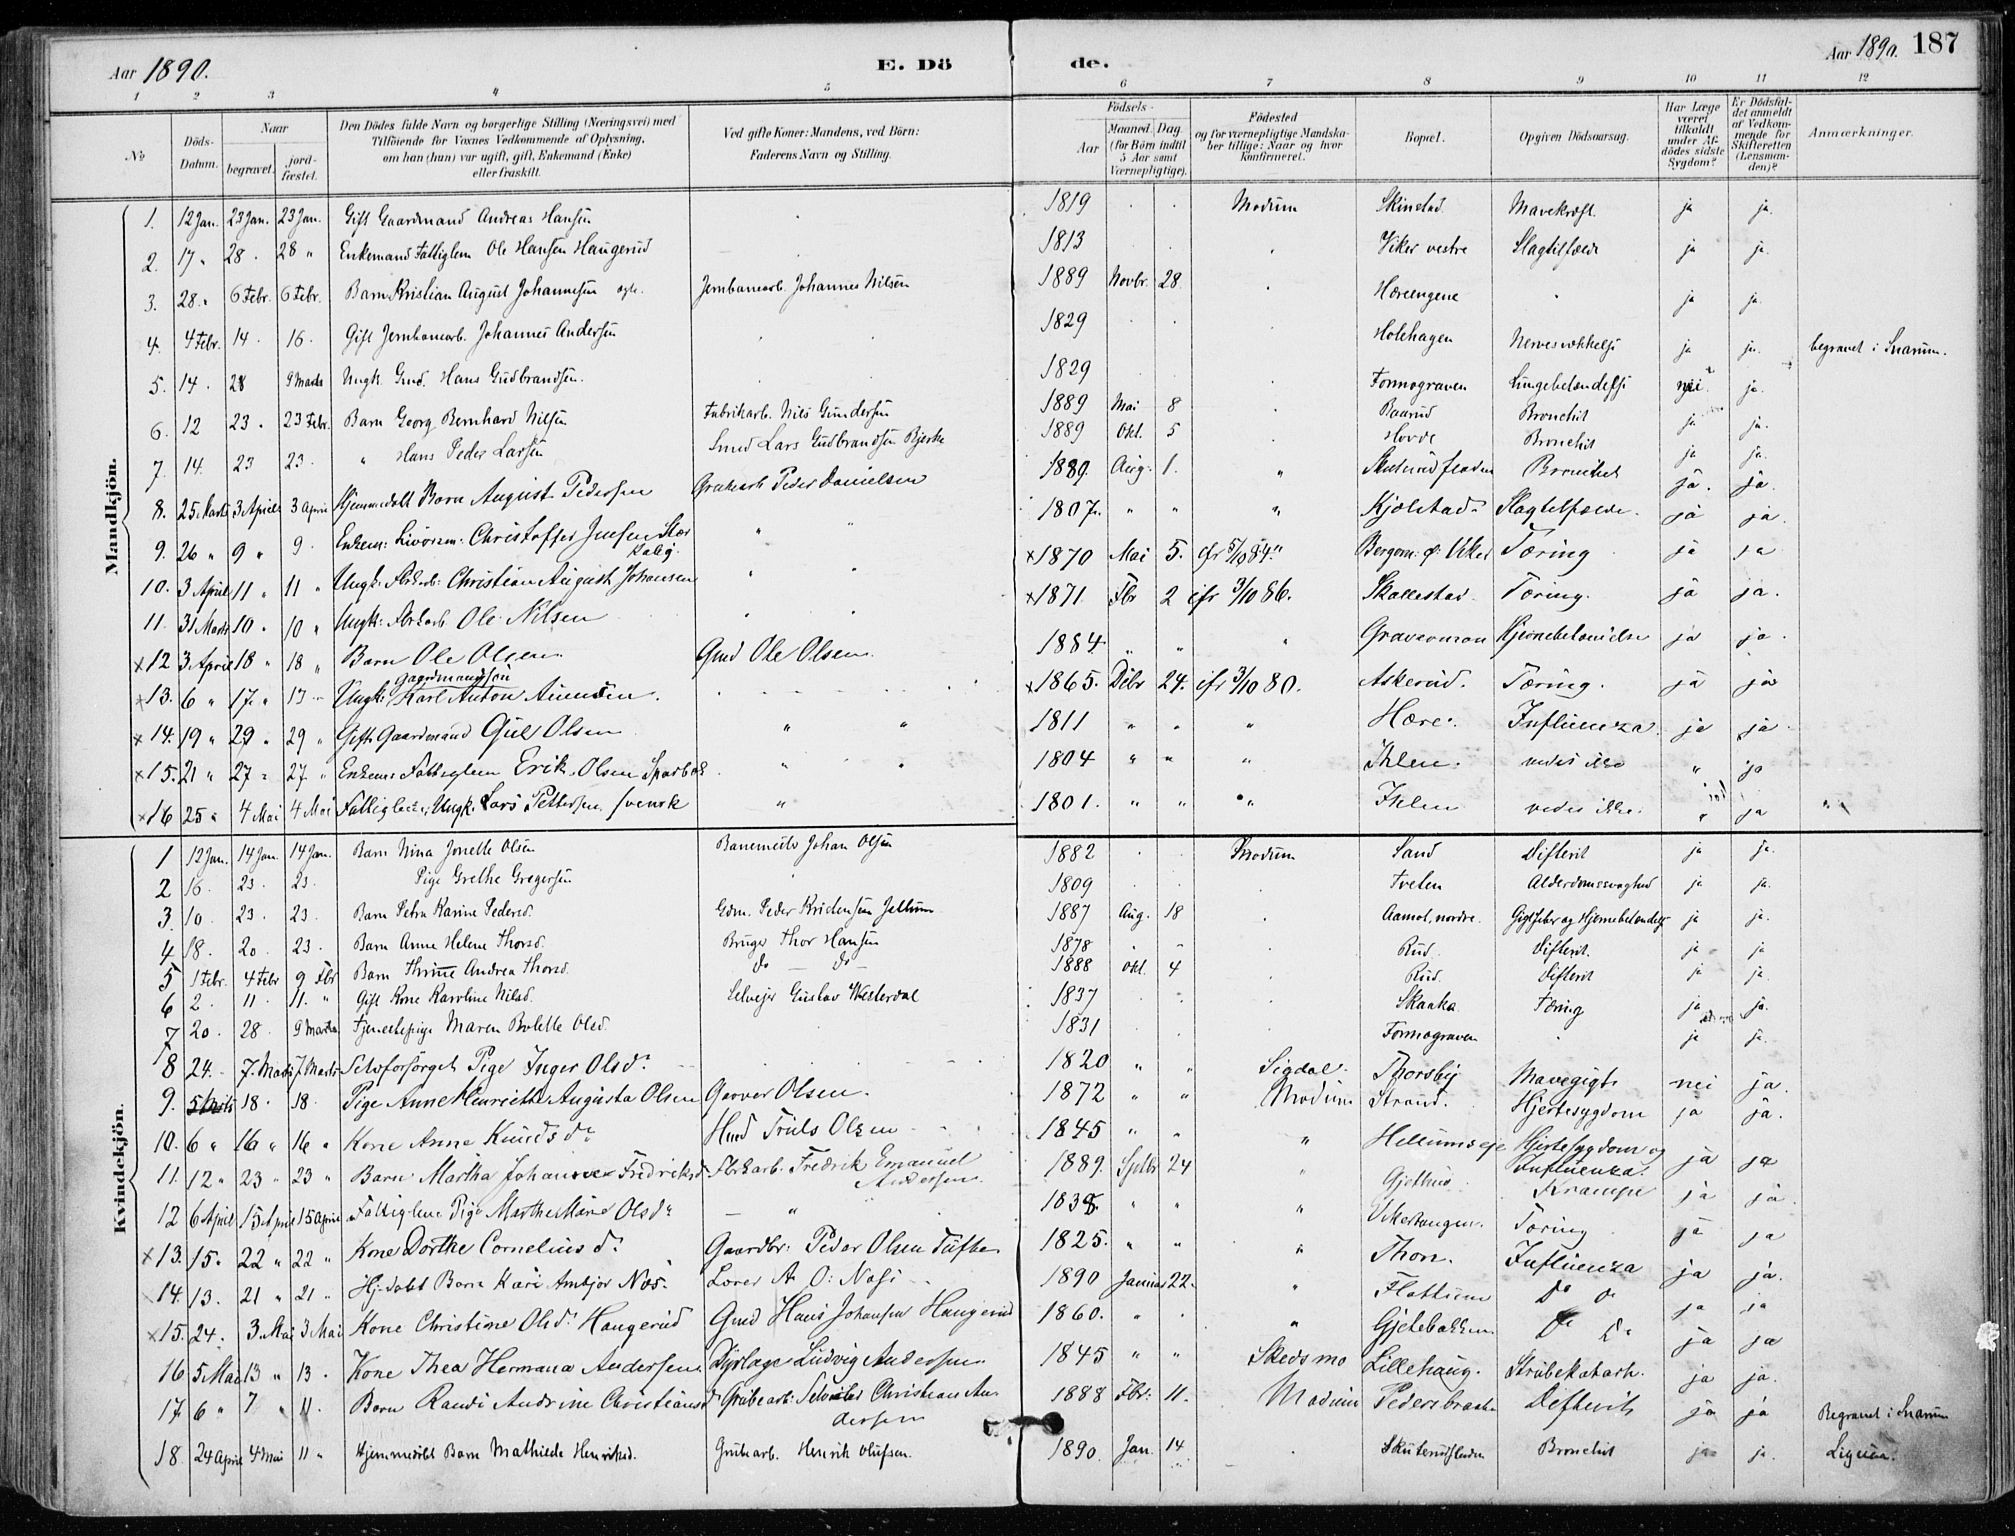 Aar 1890. E. Dö de. Aar 1890. 187
1 2 3 4 5 6 7 8 9 10 11 12
No
Döds-Datum.
Naar
begravet.
jord-fæstet.
Den Dödes fulde Navn og borgerlige Stilling (Næringsvei) med
Tilföiende for Voxnes Vedkommende af Oplysning,
om han (hun) var ugift, gift, Enkemand (Enke)
eller fraskilt.
Ved gifte Koner: Mandens, ved Börn:
Faderens Navn og Stilling.
Födsels-
Aar
Maaned. Dag
(for Börn indtil
5 Aar samt
Værnepligtige).
Födested
og for værnepligtige Mandska-
ber tillige: Naar og hvor
konfirmeret.
Bopæl.
Opgiven Dödsaarsag.
Har Læge
været
tilkaldt
under Af-
dödes sidste
Sygdom?
Er Dödsfal-
det anmeldt
af Vedkom-
mende for
Skifteretten
(Lensman-
den)?
Anmærkninger.
Mandkjön.
1. 12 Jan. 23 Jan. 23 Jan. Gift Gaardmand Andreas Hansen 1819 Modum Skinstad Mavekræft. ja ja.
2. 17 " 28 . 28 " Enkemand Fattiglem Ole Hansen Haugerud 1813 Viker vestre Slagtilfælde ja ja.
3. 28. " 6 Febr. 6 Febr. Barn Kristian August Johannesen Jernbanearb. Johannes Nilsen 1889 Novbr. 28 Hæreengene ja ja.
4. 4 Febr. 14 . 16 . Gift Jernbanearb. Johannes Andersen 1829 Holehagen ja ja. begravet i Snarum.
5. 14 . 28 9 Marts Ungk. Gmd. Hans Gudbrandsen. 1829 Formograven Lungebetændelse nei ja.
6. 12 23 . 23 Febr. Barn Georg Bernhard Nilsen Fabrikarb. Nils Gundersen 1889 Mai 8 Baarud Bronchit ja ja.
7. 14. 23 23 . " Hans Peder Larsen Smed Lars Gudbrandsen Bjerke 1889 Okt. 5 Hovde Bronchit ja ja.
8. 25 Marts 3 April 3 April Hjemmedøbt Barn August Pedersen Grubearb Peder Danielsen 1889 Aug. 1. " Skuterudfladen Bronchit ja. ja.
9. 26 " 9 " 9 . Enkem: Livörem: Christoffer Jensen 1807. " " " Kjølstad Slagtilfælde. ja ja.
10. 3 April 11 " 11 " Ungk: Fbrkarb: Christian August Johansen x1870 Mai 5. cfr 5/10 84 " Bergom: ø: Viker Tæring ja ja
11. 31 Marts 10 " 10 " Ungk: Fbrkarb Ole Nilsen x1871 Fbr 2 cfr 3/10 86. Skallestad Tæring. ja ja.
x12 3 April 18 " 18 " Barn Ole Olsen Gmd Ole Olsen. 1884 " " " Hjernebetændelse ja ja.
x13. 6 " 17 " 17 Ungk: Gaardmandsøn Karl Anton x1865. Dcbr 24. cfr 3/10 80. Askerud. Tæring. ja ja
x14. 19 " 29 " 29 " Gift Gaardmand Gul Olsen 1811 " " " Hære. Influenza. ja ja.
x15. 21 " 27 " 27 " Enkem: Fattiglem Erik Olsen 1804 " " " Ihlen. vides ikke " ja
x16 25 " 4 Mai 4 Mai Fattiglem, Ungk. Lars Pettersen svensk 1801. " " " Ihlen vides ikke. " ja
Kvindekjön.
1 12 Jan. 14 Jan. 14 Jan. Barn Nina Jonette Olsen Banemester Johan Olsen 1882 Modum Sand Difterit ja ja.
2 16. 23. 23. Pige Grethe Gregersen 1809 Tveten Alderdomssvaghed ja ja.
3 10 . 23 . 23 . Barn Petra Karine Pedersd. Gdm. Peder Kristensen 1887 Aug. 18 Aamot, nordre. Gigtfeber og Hjernebetændelse ja ja.
4 18. 20. 23. Barn Anne Helene Thorsd. Bruger Thor Hansen 1878 Rud. Difterit. ja ja.
5 1 Febr. 4 Febr 9 Fbr Barn Thrine Andrea Thorsd. do do 1888 okt. 4 Rud. Difterit ja ja.
6 2. 11 . 11. " Gift Kone Karoline Nilsd. Selvejer Gustav Westerdal 1837 Skaaka Tæring ja ja.
7 20. 28 . 9 Marts Tjenestepige Maren Bolette Olsd. 1831 Formograven ja ja.
8 24. 7. Marts 7 Marts Selvforsørget Pige Inger Olsdr 1820 " " Sigdal. Thorsby Mavegigt nei ja.
9. 5 Marts 18 . 18 . Pige Anne Henriette Augusta Olsen Garver Olsen. 1872 " " Modum Strand. Hjertesygdom ja ja.
10. 6 " 16 " 16 " Kone Anne Knudsdr Hmd Truls Olsen 1845 " " " Hjertesygdom og Influenza. ja ja
11. 12 " 23 " 23 " Barn Martha Johanne Fredriksd Fbrkarb. Fredrik Emanuel Andersen 1889. Sptbr 24 " Gjethus Krampe ja ja
12 6 April 15 April 15 April Fattiglem Pige Marthe Marie Olsdr — " 1838. " " " Vikertangen. Tæring ja ja
x13. 15. 22 " 22 " Kone Dorthe Cornelius dr Gaardbr: Peder Olsen Tufte 1825. " " " Thon. Influenza ja ja.
14. 13. 21 " 21 " Hj.døbt Barn Kari Ambjør Næs. 1890 Januar 22. " Flattum Do o ja ja
x15. 24. 3 Mai 3 Mai Kone Christine Olsdr Haugerud Gmd Hans Johansen Haugerud 1860. " " " Gjelebakken. Do Do ja ja
16 5 Mai 13 " 13 . Kone Thea Hermana Andersen Dyrlæge Ludvig Andersen 1845 " " Skedsmo Lillehaug. Strubekatarh. ja ja.
17 6 " 7 " 11. Barn Randi Andrine Christiansd Grubearb: Christian Andersen 1888 Fbr: 11. Modum Pedersbraaten Difterit ja ja Begravet i Snarum
18. 24 April 4 Mai 11 " Hjemmedöbt Barn Mathilde Henriksd. Grubearb. Henrik Olufsen. 1890. Jan. 14 Skuterudfladen Bronchit ja ja.